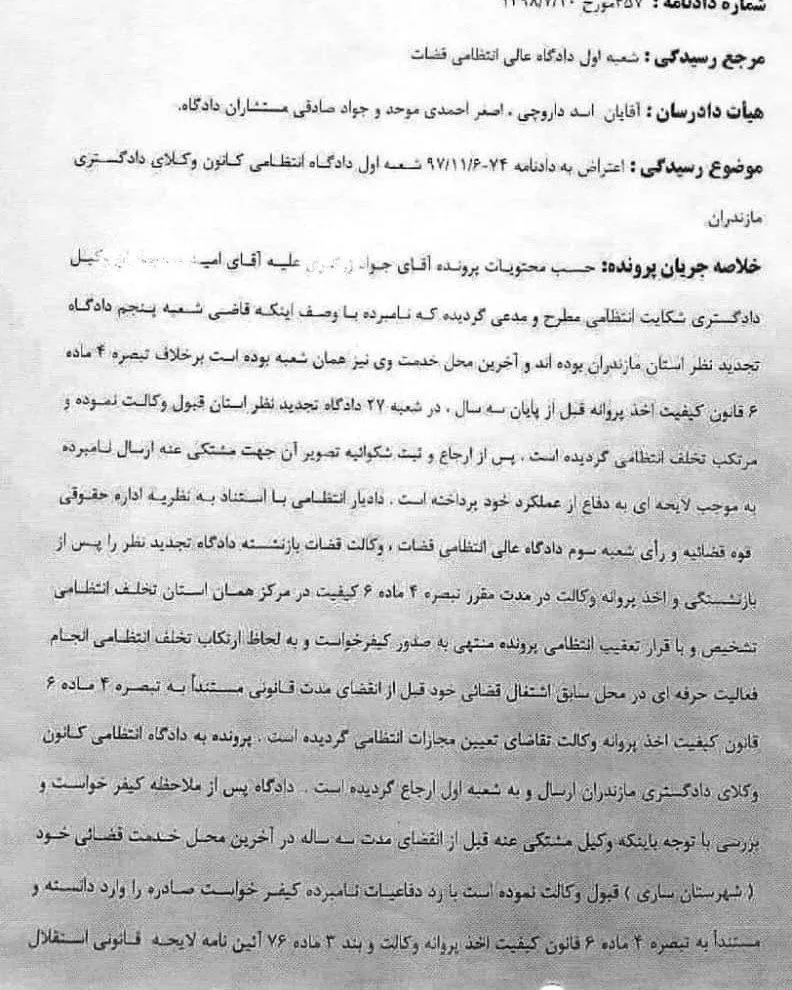 شماره دادنامه : ۲۵۷ مورخ ۱۳۹۸/۷/۱۰
مرجع رسیدگی : شعبه اول دادگاه عالی انتظامی قضات
هیأت دادرسان : آقایان اسد داروچی ، اصغر احمدی موحد و جواد صادقی مستشاران دادگاه.
موضوع رسیدگی : اعتراض به دادنامه ۷۴-۹۷/۱۱/۶ شعبه اول دادگاه انتظامی کانون وکلای دادگستری
مازندران
خلاصه جریان پرونده: حسب محتویات پرونده آقای جواد علیه آقای امید وکیل
دادگستری شکایت انتظامی مطرح و مدعی گردیده که نامبرده با وصف اینکه قاضی شعبه پنجم دادگاه
تجدید نظر استان مازندران بوده اند و آخرین محل خدمت وی نیز همان شعبه بوده است برخلاف تبصره ۴ ماده
۶ قانون کیفیت اخذ پروانه قبل از پایان سه سال ، در شعبه ۲۷ دادگاه تجدید نظر استان قبول وکالت نموده و
مرتکب تخلف انتظامی گردیده است . پس از ارجاع و ثبت شکوائیه تصویر آن جهت مشتکی عنه ارسال نامبرده
به موجب لایحه ای به دفاع از عملکرد خود پرداخته است . دادیار انتظامی با استناد به نظریه اداره حقوقی
قوه قضائیه و رأی شعبه سوم دادگاه عالی انتظامی قضات ، وکالت قضات بازنشسته دادگاه تجدید نظر را پس از
بازنشستگی و اخذ پروانه وکالت در مدت مقرر تبصره ۴ ماده ۶ کیفیت در مرکز همان استان تخلف انتظامی
تشخیص و با قرار تعقیب انتظامی پرونده منتهی به صدور کیفرخواست و به لحاظ ارتکاب تخلف انتظامی انجام
فعالیت حرفه ای در محل سابق اشتغال قضائی خود قبل از انقضای مدت قانونی مستنداً به تبصره ۴ ماده ۶
قانون کیفیت اخذ پروانه وکالت تقاضای تعیین مجازات انتظامی گردیده است . پرونده به دادگاه انتظامی کانون
وکلای دادگستری مازندران ارسال و به شعبه اول ارجاع گردیده است . دادگاه پس از ملاحظه کیفر خواست و
بررسی با توجه باینکه وکیل مشتکی عنه قبل از انقضای مدت سه ساله در آخرین محل خدمت قضائی خود
( شهرستان ساری ) قبول وکالت نموده است با رد دفاعیات نامبرده کیفر خواست صادره را وارد دانسته و
مستنداً به تبصره ۴ ماده ۶ قانون کیفیت اخذ پروانه وکالت و بند ۳ ماده ۷۶ آئین نامه لایحه قانونی استقلال